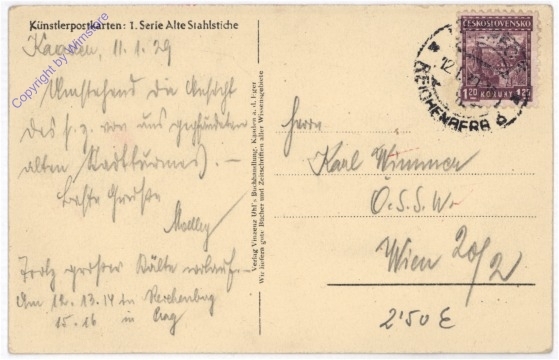 Künstlerpostkarten: I. Serie Alte Stahlstiche
Kaaden, 11.1.29
Umstehend die Ansicht
des s. z. von uns
alten Stadtturmes). —
Beste Grüße
Trotz großer Kälte
Am 12. 13. 14 in Reichenberg
15. 16 in Prag
Verlag Vinzenz Uhl's Buchhandlung, Kaaden a. d. Eger
Wir liefern gute Bücher und Zeitschriften aller Wissensgebiete
ČESKOSLOVENSKO
1.20 KORUNY 1.20
REICHENBERG 6
Herrn
Karl Wimmer
Ö.S.S.W.
Wien 20/2
2'50 E
Copyright by Wimstore